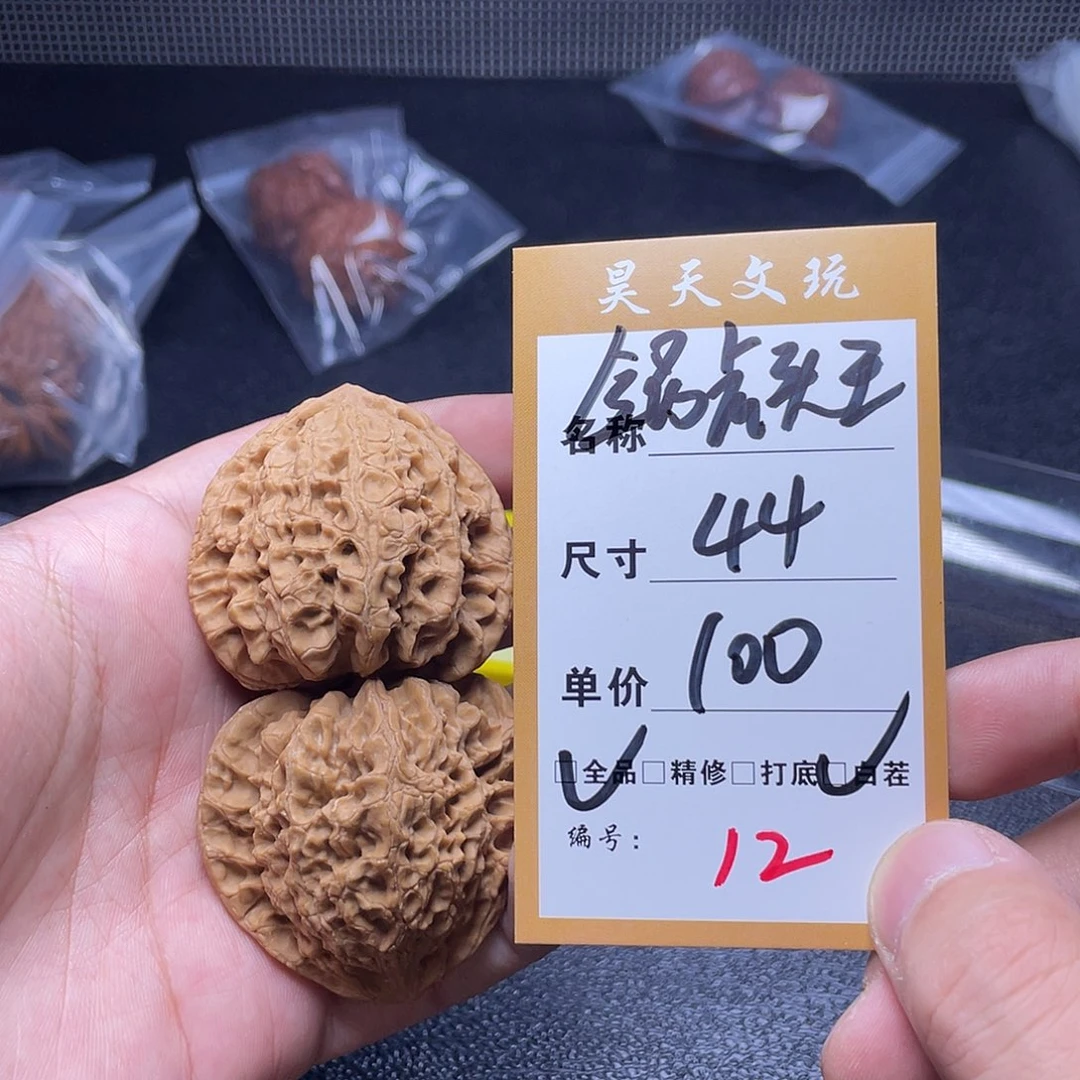 昊天文玩
名称 虎头王
尺寸 44
单价 100
☑全品□精修□打底☑白茬
编号： 12